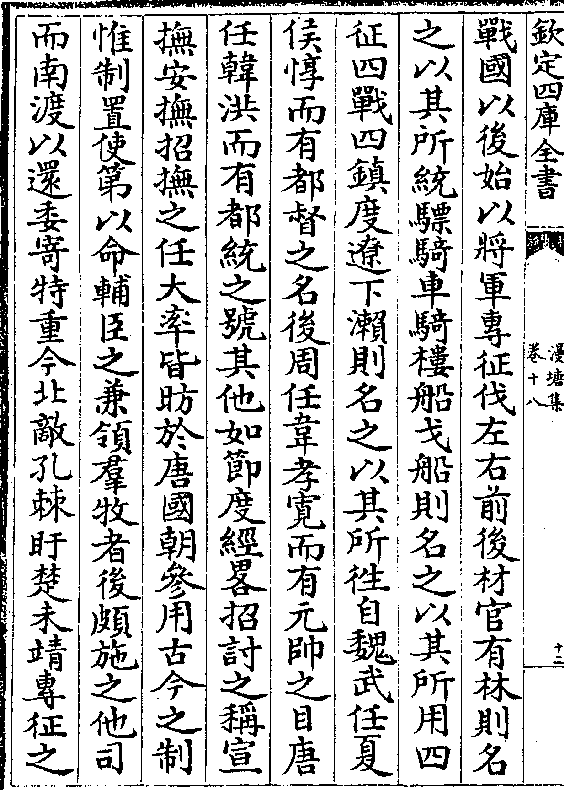 欽定四庫全書
漫塘集
卷十八
十二
戰國以後始以將軍專征伐左右前後材官有林則名
之以其所統驃騎車騎樓船戈船則名之以其所用四
征四戰四鎮度遼下瀨則名之以其所徃自魏武任夏
侯惇而有都督之名後周任韋孝寛而有元帥之目唐
任韓洪而有都統之號其他如節度經畧招討之稱宣
撫安撫招撫之任大率皆昉於唐國朝參用古今之制
惟制置使第以命輔臣之兼領羣牧者後頗施之他司
而南渡以還委寄特重今北敵孔棘盱楚未靖專征之